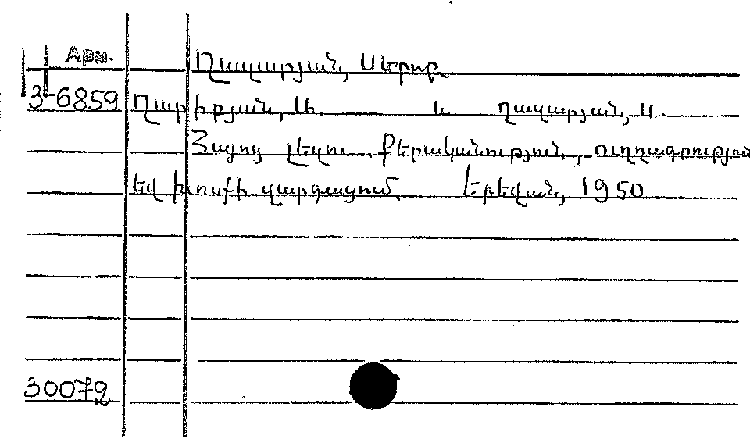 Արս. Ղազարյան, Սերոբ
3-6859 Ղարիբյան, Ա. և Ղազարյան, Ս.
Հայոց լեզու. Քերականություն, ուղղագրություն
եվ խոսքի զարգացում. Երեվան, 1950
30079